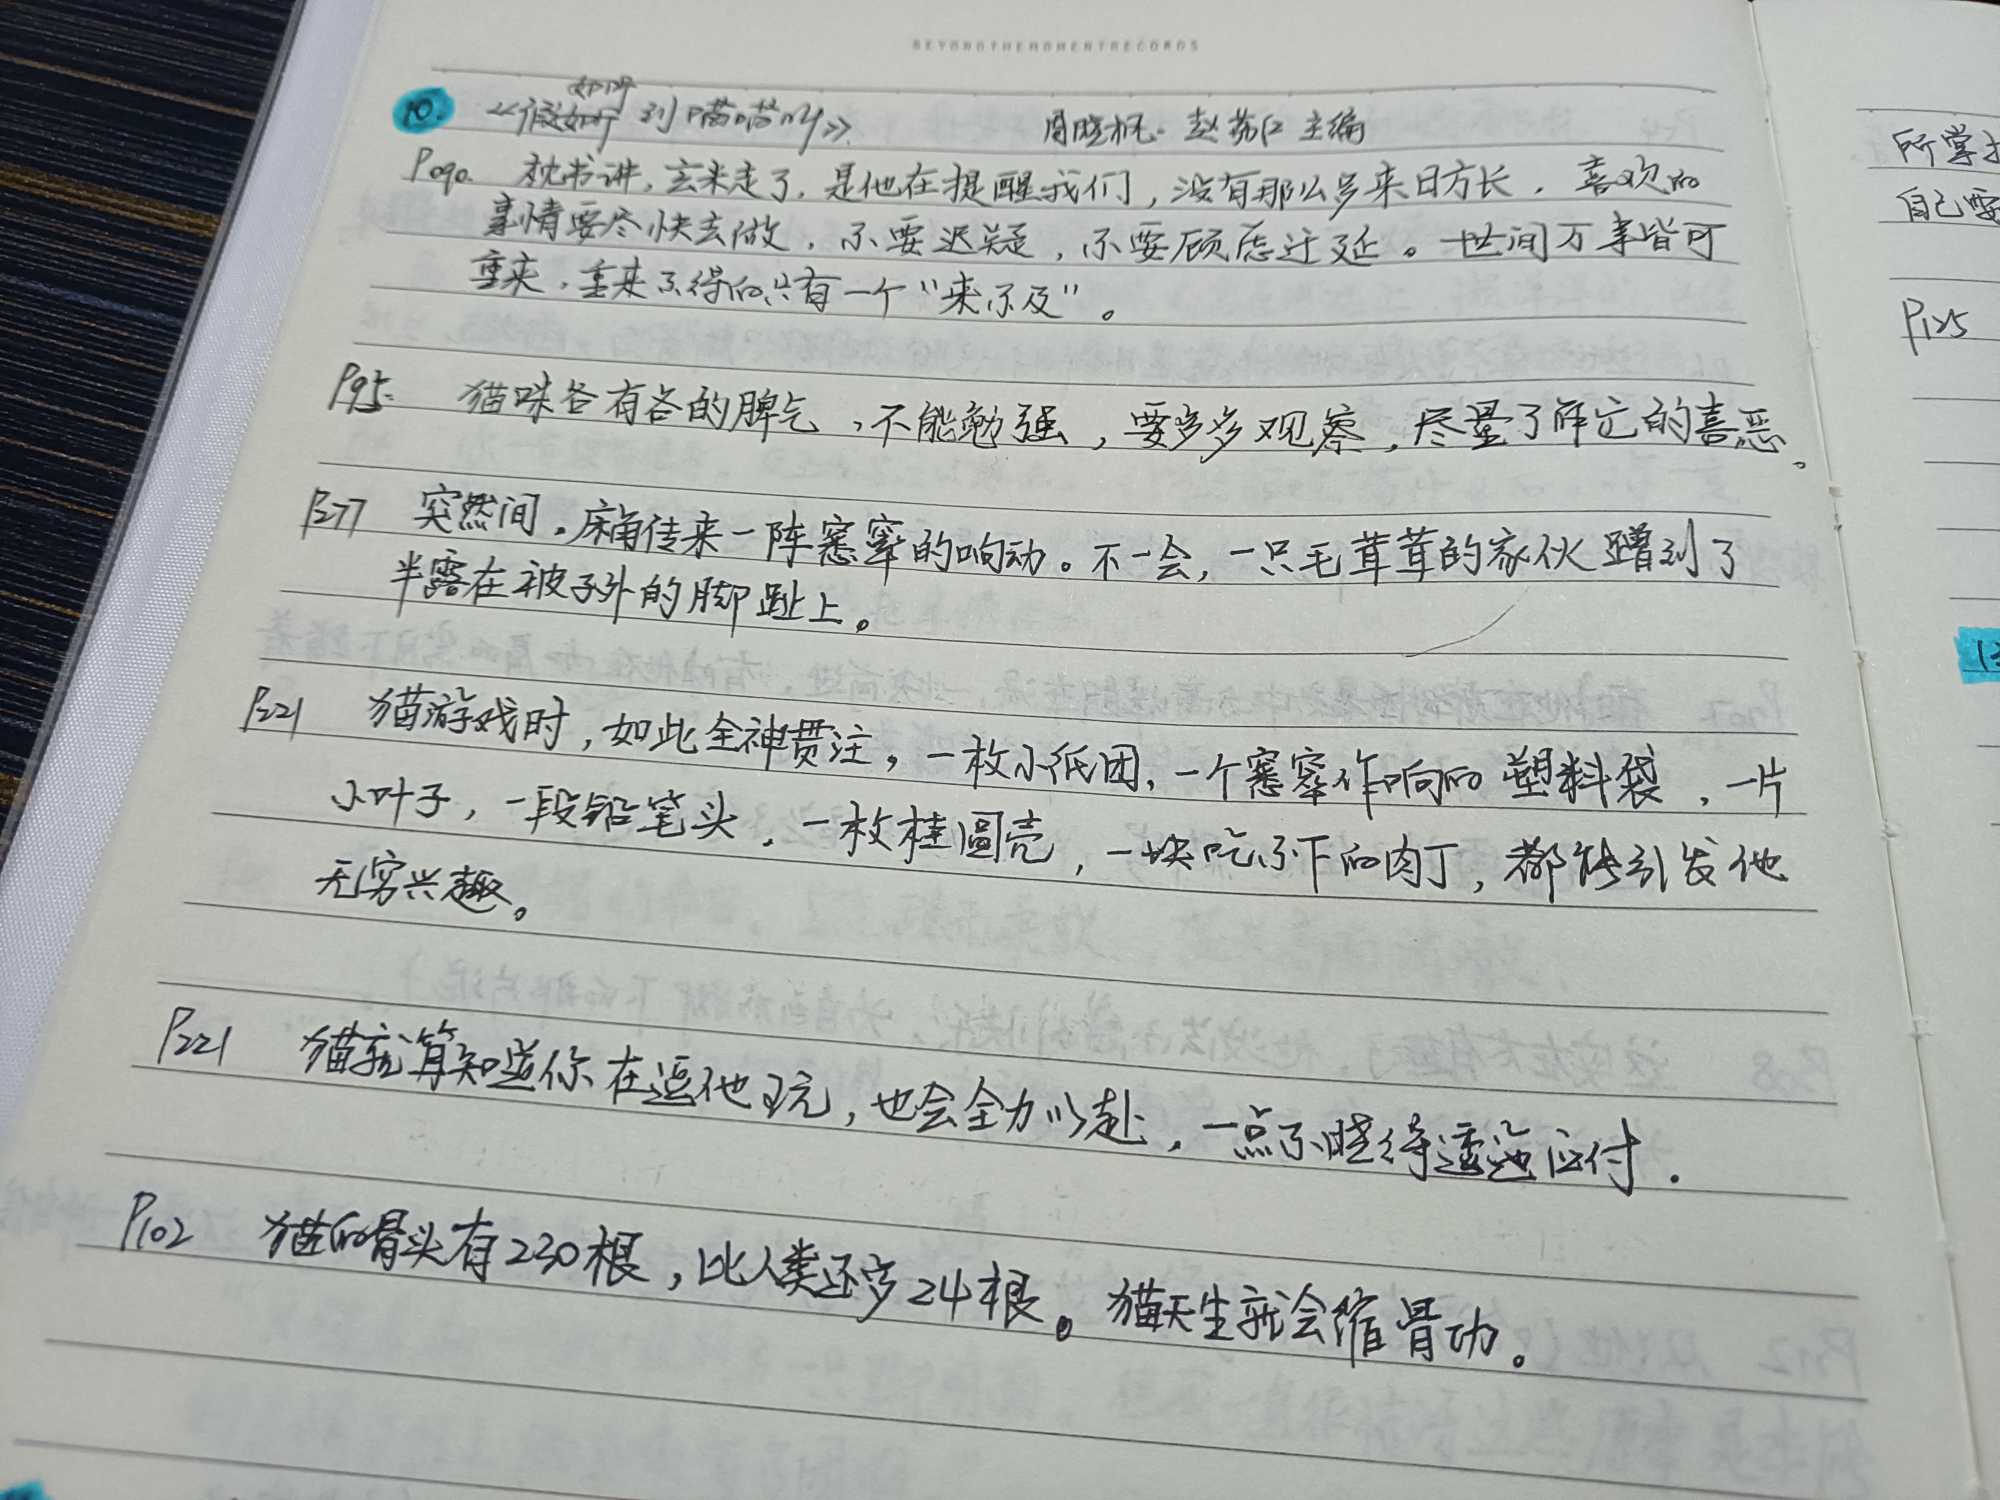 BEYONDTHEMOMENTRECORDS
如听
10. 《假如听到喵喵叫》 周晓枫. 赵荔红 主编
P090. 枕书讲,玄米走了,是他在提醒我们,没有那么多来日方长,喜欢的
事情要尽快去做,不要迟疑,不要顾虑迁延。世间万事皆可
重来,重来不得的只有一个“来不及”。
P95. 猫咪各有各的脾气,不能勉强,要多多观察,尽量了解它的喜恶。
P277 突然间,床角传来一阵窸窣的响动。不一会,一只毛茸茸的家伙蹭到了
半露在被子外的脚趾上。
P221 猫游戏时,如此全神贯注,一枚小纸团,一个窸窣作响的塑料袋,一片
小叶子,一段铅笔头,一枚桂圆壳,一块吃不下的肉丁,都能引发他
无穷兴趣。
P221 猫就算知道你在逗他玩,也会全力以赴,一点不晓得逶迤应付.
P102 猫的骨头有230根,比人类还多24根。猫天生就会缩骨功。
所学
自己要
P125